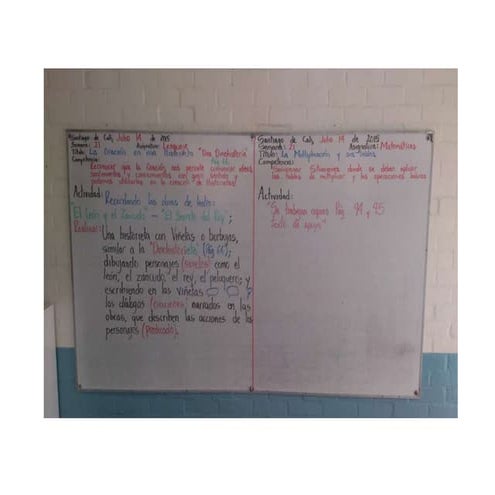 Santiago de Cali, Julio 14 de 2015
Semana: 21 Asignatura: Lenguaje
Título: La Oración en una Historieta "Una Dinohistoria"
Pág 66
Competencia:
Reconocer que la Oración nos permite comunicar ideas,
sentimientos y pensamientos con gran sentido y
podemos utilizarlas en la creación de Historietas!
Actividad: Recordando las obras de teatro:
"El León y el Zancudo - "El Secreto del Rey";
Realizar: Una historieta con Viñetas o burbujas,
similar a la "Dinohistorieta" (Pág 66);
dibujando personajes (sujetos) como el
león, el zancudo, el rey, el peluquero; y
escribiendo en las viñetas
los diálogos (oraciones) narrados en las
obras, que describen las acciones de los
personajes (predicado).
Santiago de Cali, Julio 14 de 2015
Semana: 21 Asignatura: Matemáticas
Título: La Multiplicación y sus tablas
Competencia:
Solucionar Situaciones donde se deben aplicar
las tablas de multiplicar y las operaciones básicas
Actividad:
"Se trabaja ahora Pág 94 y 95
texto de apoyo"